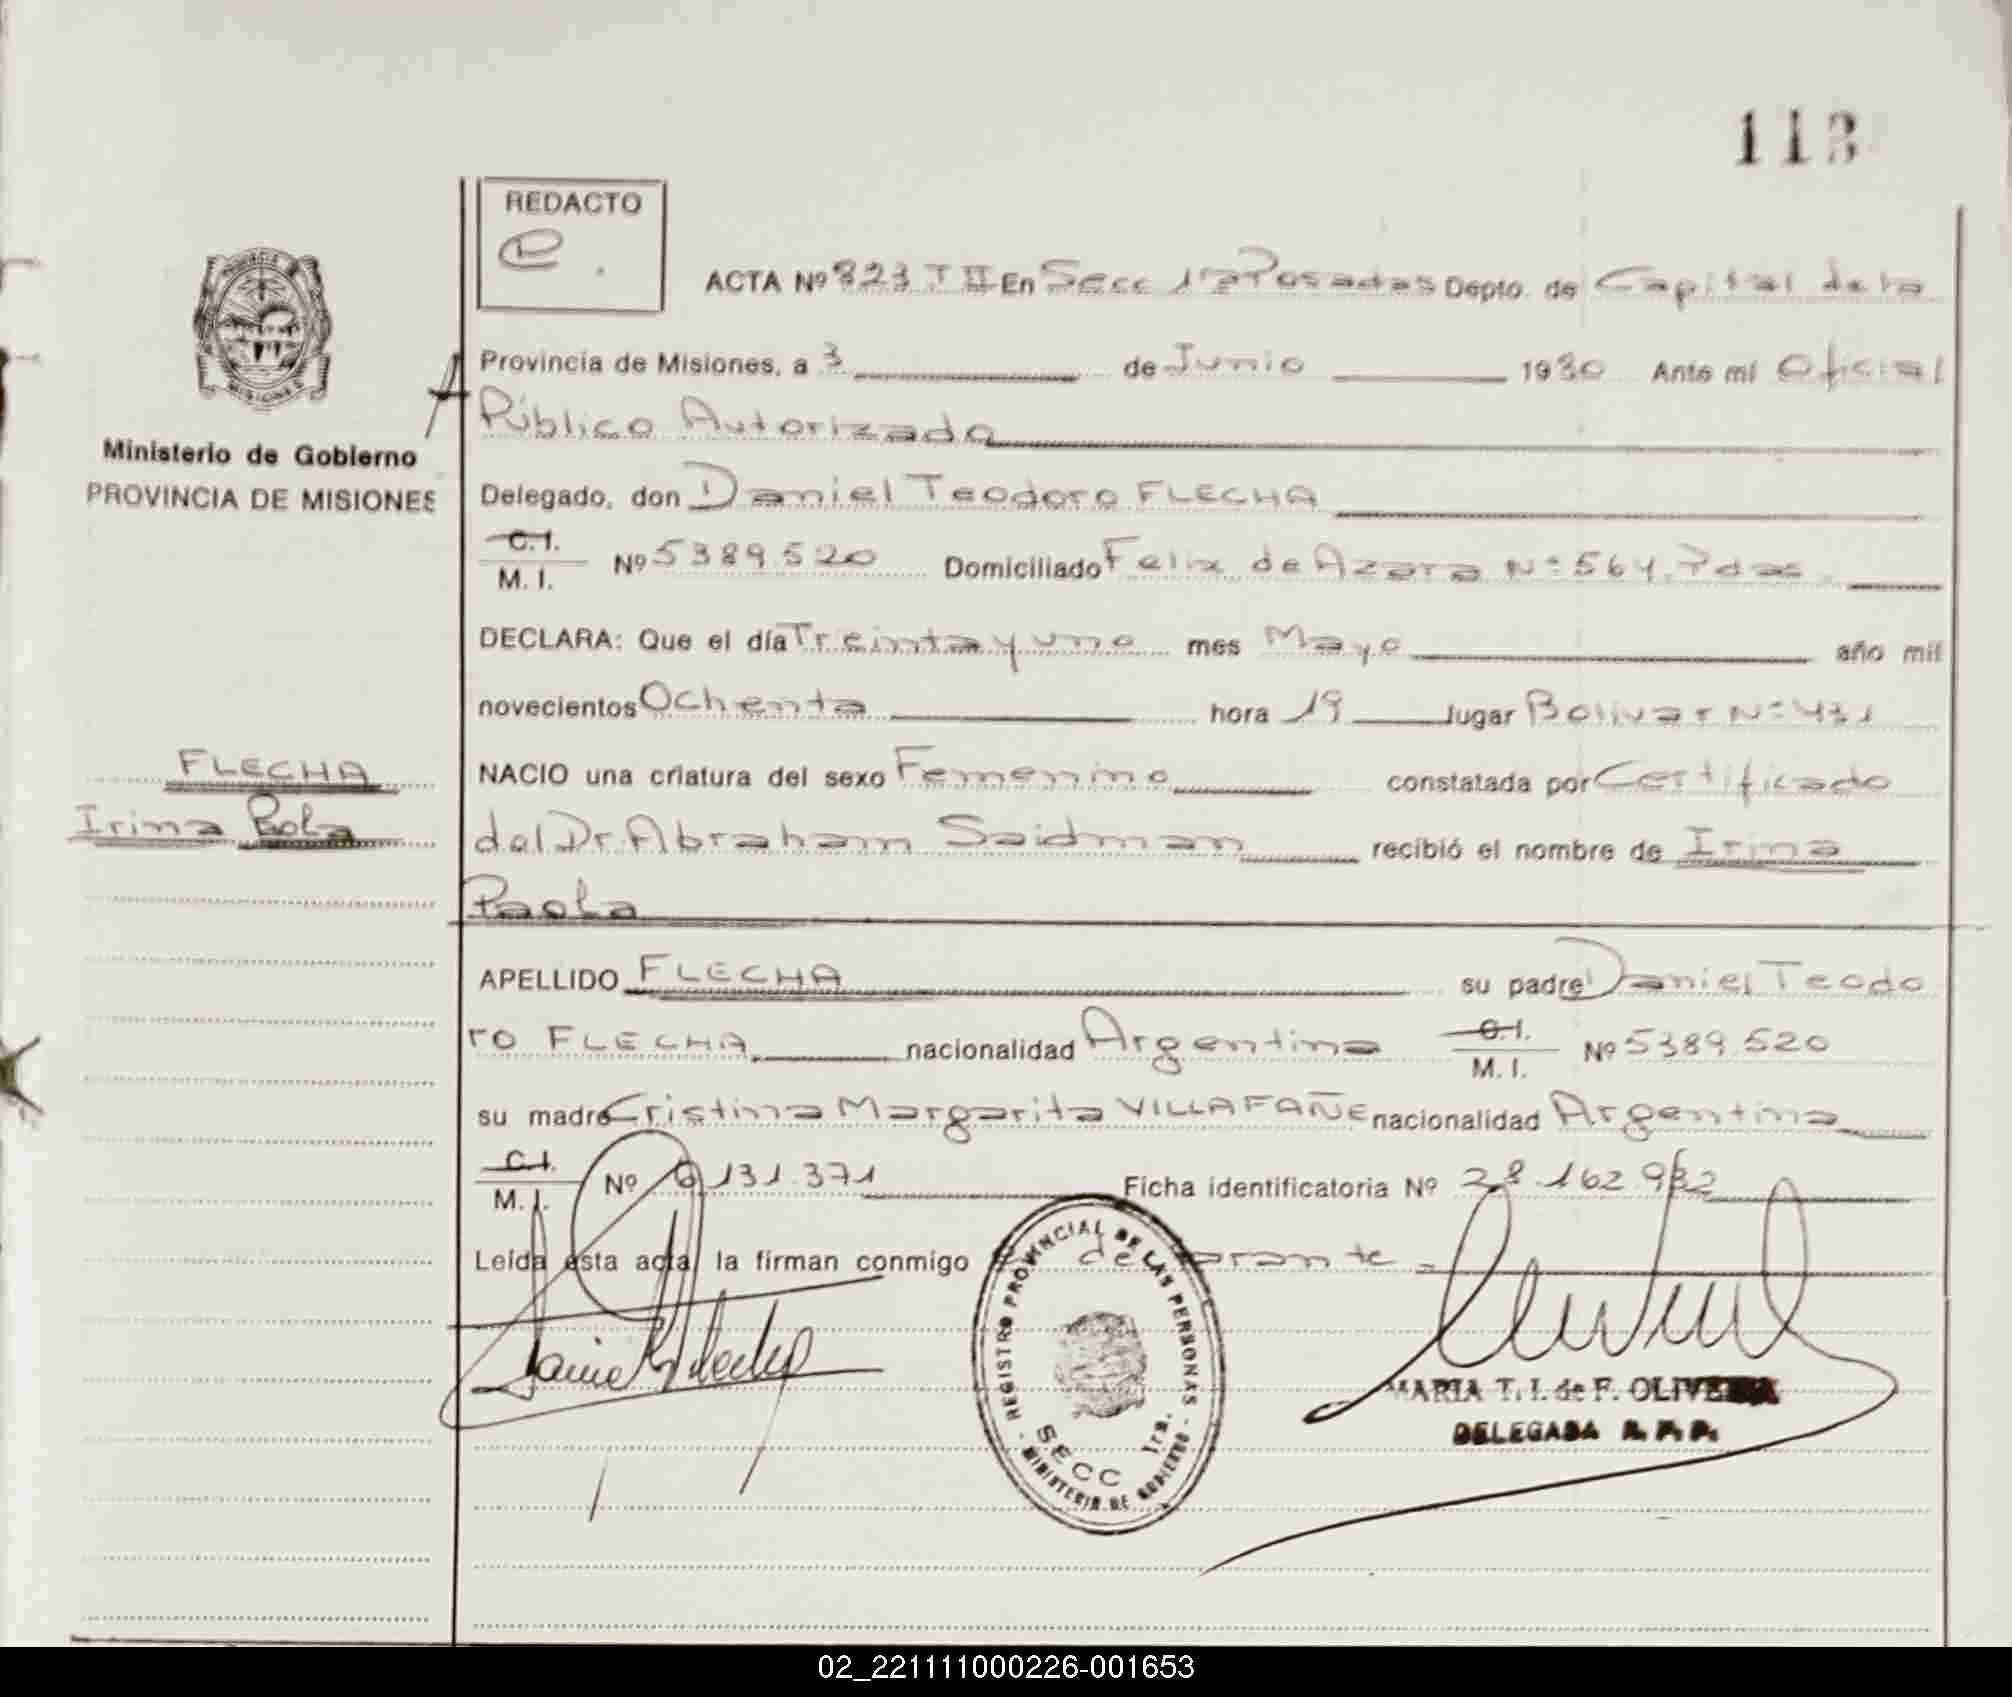 113
REDACTO
e.
ACTA Nº 823 T II En Secc 1ª Posadas Depto. de Capital de la
Provincia de Misiones, a 3 de Junio 1980 Ante mí Oficial
Público Autorizado
Ministerio de Gobierno
PROVINCIA DE MISIONES
Delegado, don Daniel Teodoro FLECHA
C.I.
M. I. Nº 5389.520 Domiciliado Felix de Azara Nº 564. Pdas
DECLARA: Que el día Treinta y uno mes Mayo año mil
novecientos Ochenta hora 19 lugar Bolivar Nº 431
FLECHA
Irina Paola
NACIO una criatura del sexo Femenino constatada por Certificado
del Dr. Abraham Saidman recibió el nombre de Irina
Paola
APELLIDO FLECHA su padre Daniel Teodo
ro FLECHA nacionalidad Argentina C.I.
M. I. Nº 5389.520
su madre Cristina Margarita VILLAFAÑE nacionalidad Argentina
C.I.
M. I. Nº 6.131.371 Ficha identificatoria Nº 28.162.982
Leída ésta acta la firman conmigo
Daniel Flecha
REGISTRO PROVINCIAL DE LAS PERSONAS
SECC 1ra.
MINISTERIO DE GOBIERNO
MARIA T. I. de F. OLIVEIRA
DELEGADA R. P. P.
PROVINCIA DE
MISIONES
02_221111000226-001653